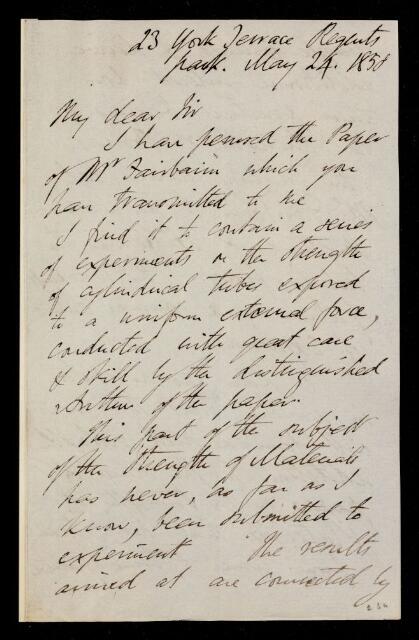 23 York Terrace Regents
park. May 24. 1858
My dear Sir
I have perused the Paper
of Mr Fairbairn which you
have transmitted to me
I find it to contain a series
of experiments on the strength
of cylindrical tubes exposed
to a uniform external force,
conducted with great care
& skill by the distinguished
Author of the paper.
This part of the subject
of the Strength of Materials
has never, as far as I
know, been submitted to
experiment The results
arrived at are connected by